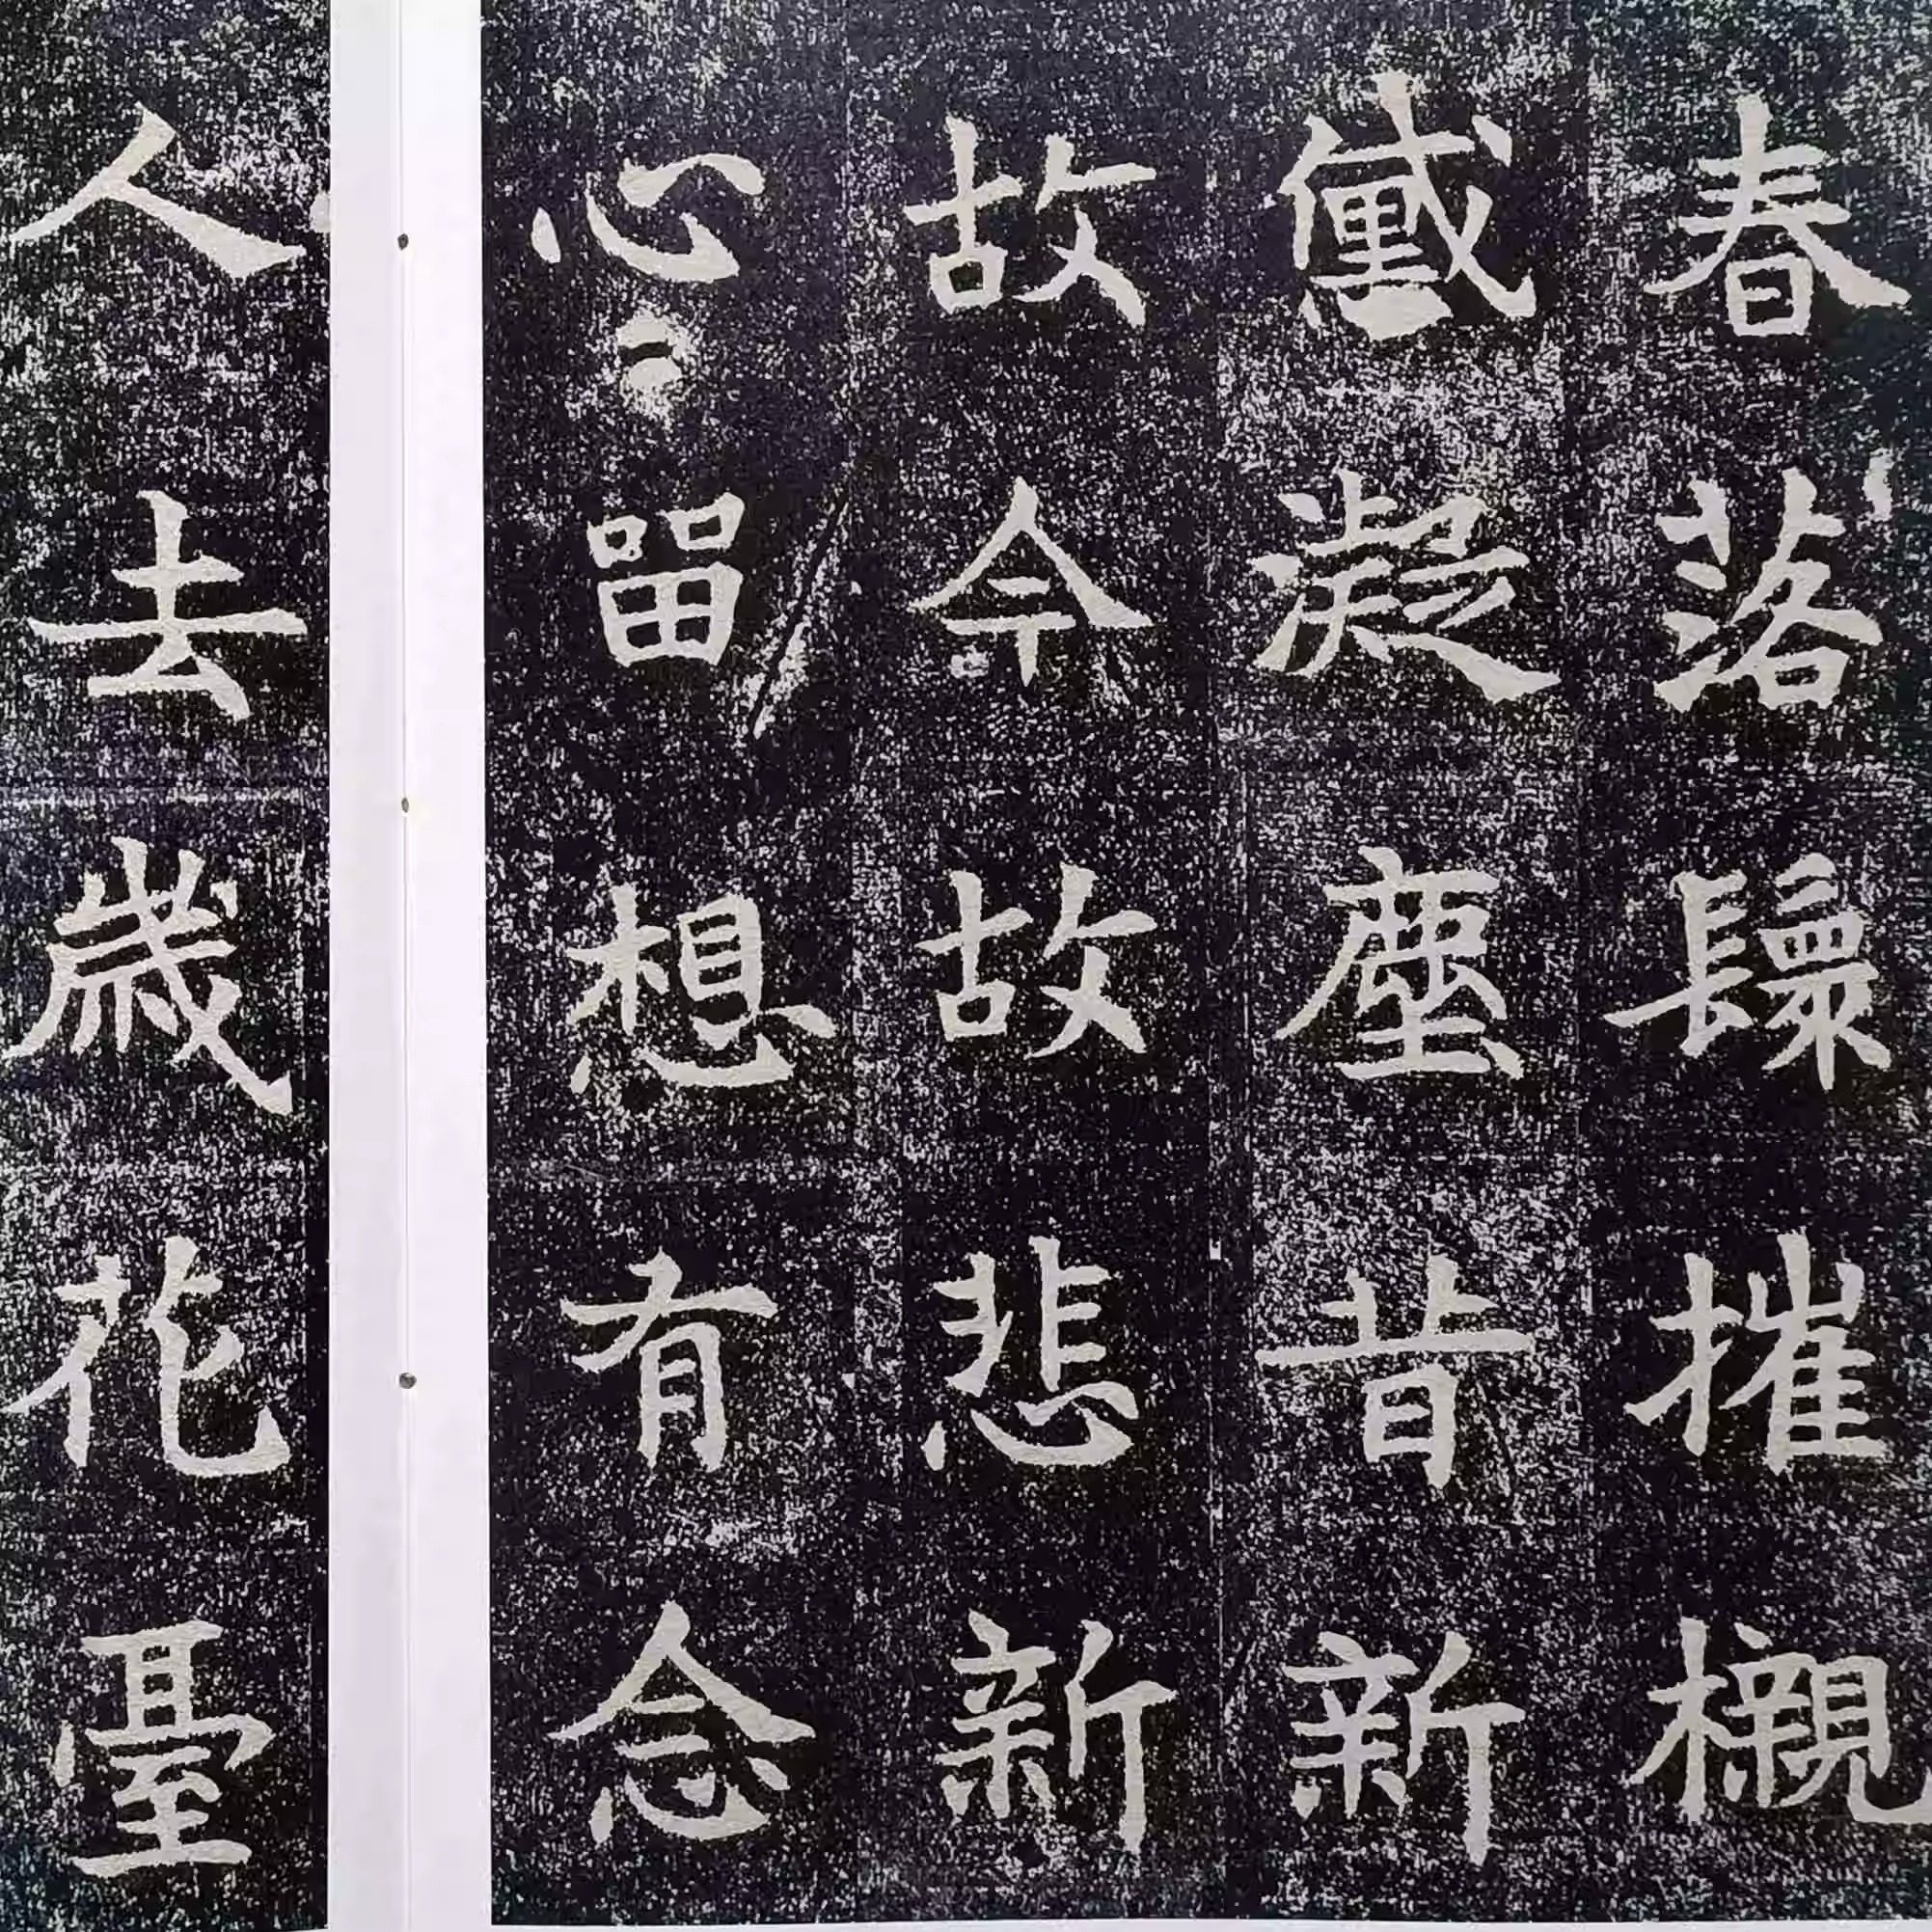 春落鬟摧櫬
黛凝塵昔新
故今故悲新
心留想有念
人去歲花臺